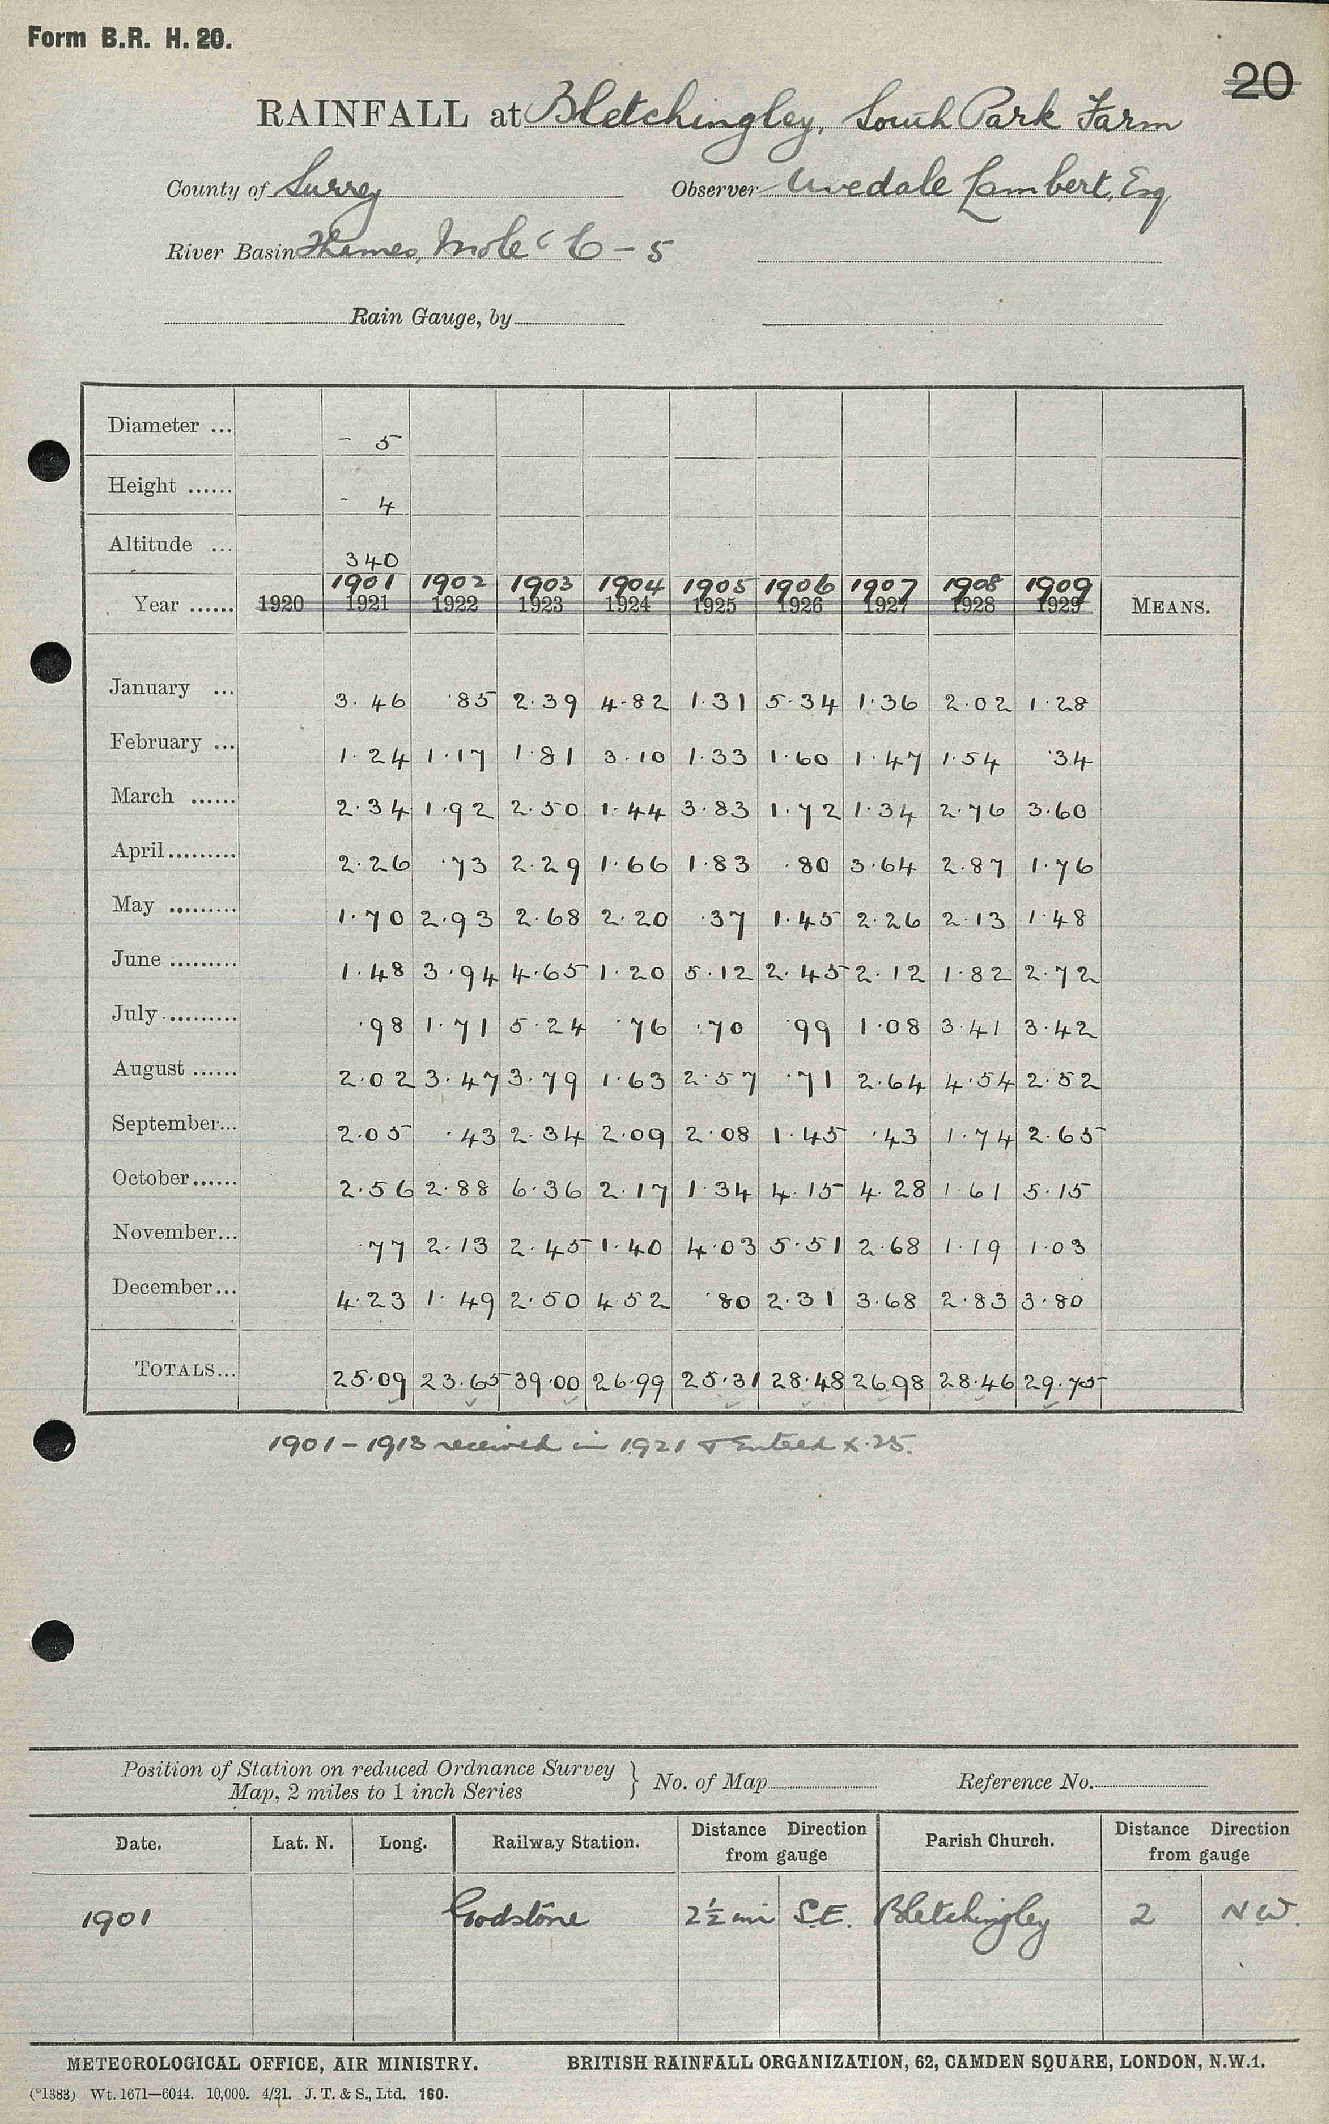 Form B.R. H. 20.
20
RAINFALL at Bletchingley, South Park Farm
County of Surrey Observer Uvedale Lambert, Esq
River Basin Thames, Mole C - 5
Rain Gauge, by
Diameter ... - 5
Height ...... - 4
Altitude ... 340
1901 1902 1903 1904 1905 1906 1907 1908 1909
Year ...... 1920 1921 1922 1923 1924 1925 1926 1927 1928 1929 MEANS.
January ... 3.46 .85 2.39 4.82 1.31 5.34 1.36 2.02 1.28
February ... 1.24 1.17 1.81 3.10 1.33 1.60 1.47 1.54 .34
March ...... 2.34 1.92 2.50 1.44 3.83 1.72 1.34 2.76 3.60
April......... 2.26 .73 2.29 1.66 1.83 .80 3.64 2.87 1.76
May ......... 1.70 2.93 2.68 2.20 .37 1.45 2.26 2.13 1.48
June ......... 1.48 3.94 4.65 1.20 5.12 2.45 2.12 1.82 2.72
July ......... .98 1.71 5.24 .76 .70 .99 1.08 3.41 3.42
August ...... 2.02 3.47 3.79 1.63 2.57 .71 2.64 4.54 2.52
September... 2.05 .43 2.34 2.09 2.08 1.45 .43 1.74 2.65
October...... 2.56 2.88 6.36 2.17 1.34 4.15 4.28 1.61 5.15
November... .77 2.13 2.45 1.40 4.03 5.51 2.68 1.19 1.03
December... 4.23 1.49 2.50 4.52 .80 2.31 3.68 2.83 3.80
TOTALS... 25.09 23.65 39.00 26.99 25.31 28.48 26.98 28.46 29.75
1901 - 1913 received in 1921 & Entered X.25.
Position of Station on reduced Ordnance Survey
Map, 2 miles to 1 inch Series } No. of Map Reference No.
Date. Lat. N. Long. Railway Station. Distance Direction from gauge Parish Church. Distance Direction from gauge
1901 Godstone 2½ mi S.E. Bletchingley 2 N W.
METEOROLOGICAL OFFICE, AIR MINISTRY. BRITISH RAINFALL ORGANIZATION, 62, CAMDEN SQUARE, LONDON, N.W.1.
(*1383) Wt. 1671—6044. 10,000. 4/21. J. T. & S., Ltd. 160.